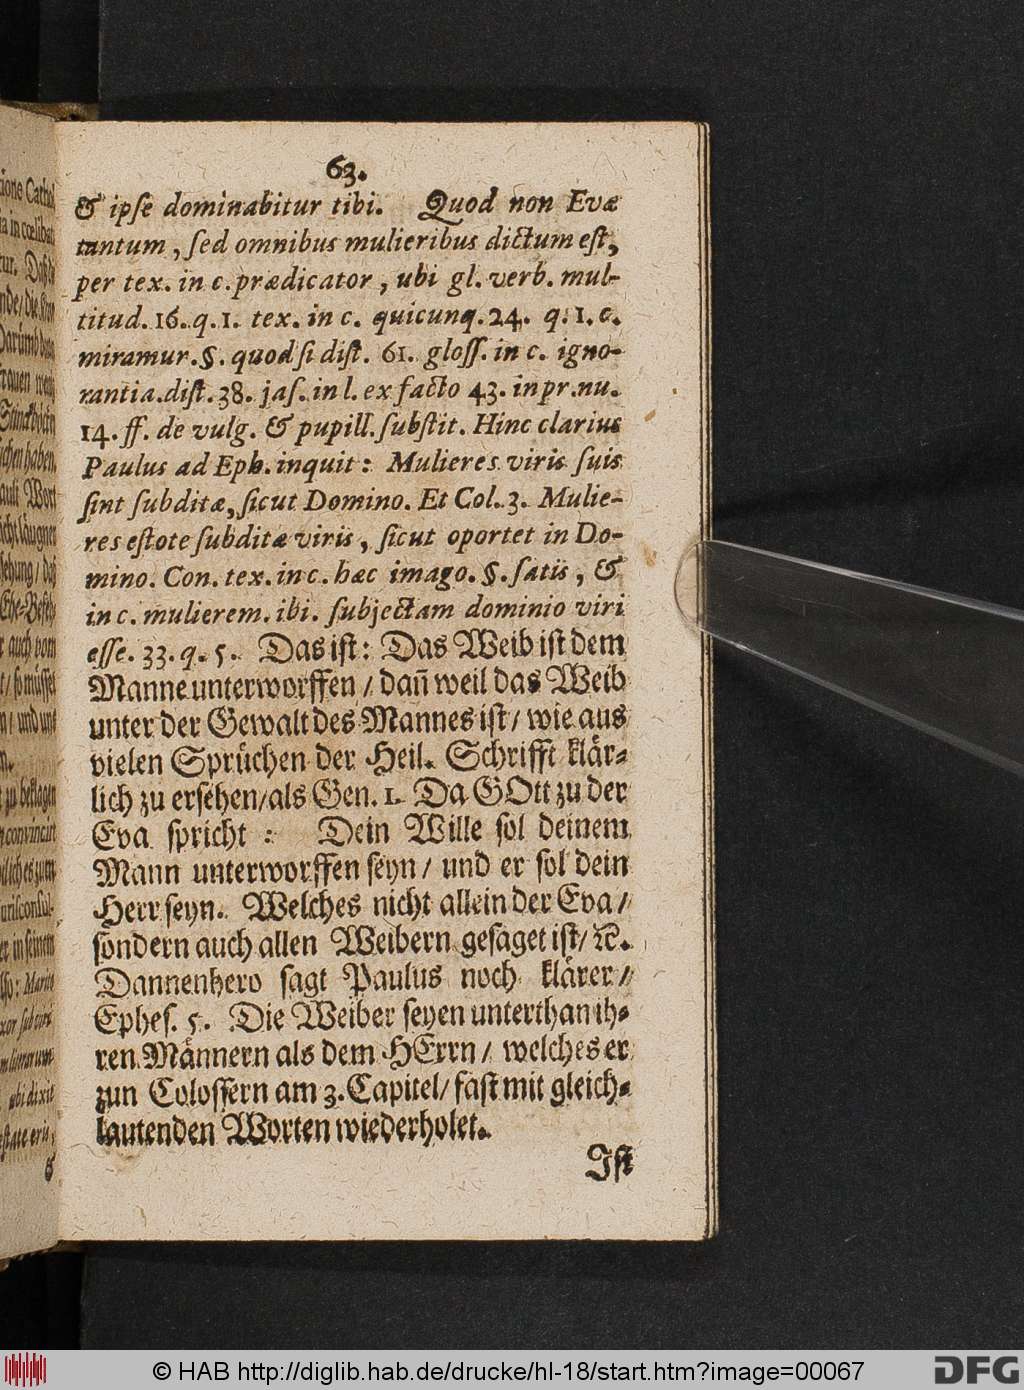 63.
& ipſe dominabitur tibi. Quod non Evæ
tantum, ſed omnibus mulieribus dictum eſt,
per tex. in c. prædicator, ubi gl. verb. mul-
titud. 16. q. 1. tex. in c. quicunq. 24. q. 1. c.
miramur. §. quod ſi diſt. 61. gloſſ. in c. igno-
rantia. diſt. 38. jaſ. in l. ex facto 43. in pr. nu.
14. ff. de vulg. & pupill. ſubſtit. Hinc clarius
Paulus ad Eph. inquit: Mulieres viris ſuis
ſint ſubditæ, ſicut Domino. Et Col. 3. Mulie-
res eſtote ſubditæ viris, ſicut oportet in Do-
mino. Con. tex. in c. hæc imago. §. ſatis, &
in c. mulierem. ibi. ſubjectam dominio viri
eſſe. 33. q. 5. Das iſt: Das Weib iſt dem
Manne unterworffen / dañ weil das Weib
unter der Gewalt des Mannes iſt / wie aus
vielen Sprüchen der Heil. Schrifft klär-
lich zu erſehen / als Gen. 1. Da GOtt zu der
Eva ſpricht: Dein Wille ſol deinem
Mann unterworffen ſeyn / und er ſol dein
Herr ſeyn. Welches nicht allein der Eva /
ſondern auch allen Weibern geſaget iſt / ꝛc.
Dannenhero ſagt Paulus noch klärer /
Epheſ. 5. Die Weiber ſeyen unterthan ih-
ren Männern als dem HErrn / welches er
zun Coloſſern am 3. Capitel / faſt mit gleich-
lautenden Worten wiederholet.
Iſt
© HAB http://diglib.hab.de/drucke/hl-18/start.htm?image=00067
DFG